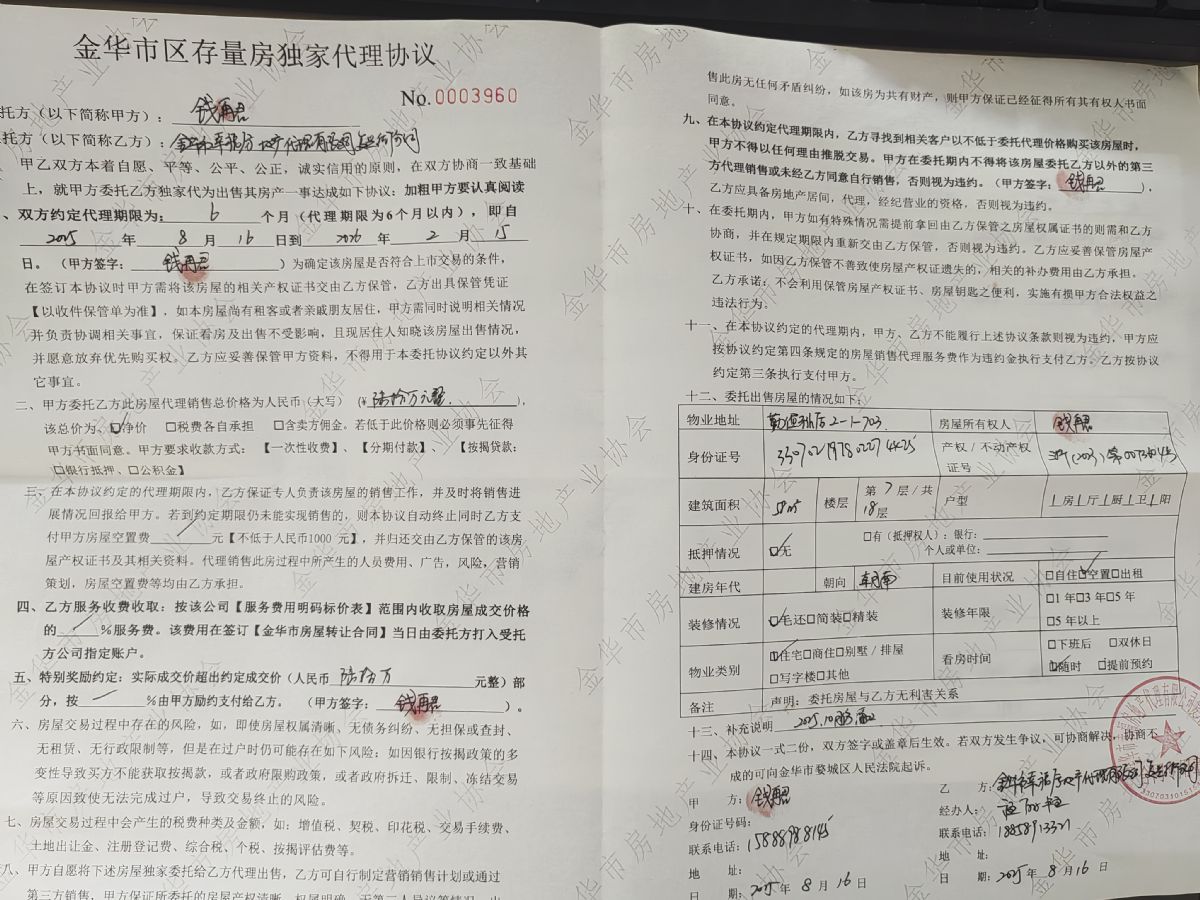 金华市区存量房独家代理协议
No.0003960
托方（以下简称甲方）：钱再君
托方（以下简称乙方）：
甲乙双方本着自愿、平等、公平、公正，诚实信用的原则，在双方协商一致基础
上，就甲方委托乙方独家代为出售其房产一事达成如下协议：加粗甲方要认真阅读
、双方约定代理期限为：6个月（代理期限为6个月以内），即自
2025年8月16日到2026年2月15
日。（甲方签字：钱再君）为确定该房屋是否符合上市交易的条件，
在签订本协议时甲方需将该房屋的相关产权证书交由乙方保管，乙方出具保管凭证
【以收件保管单为准】，如本房屋尚有租客或者亲戚朋友居住，甲方需同时说明相关情况
并负责协调相关事宜，保证看房及出售不受影响，且现居住人知晓该房屋出售情况，
并愿意放弃优先购买权。乙方应妥善保管甲方资料，不得用于本委托协议约定以外其
它事宜。
二、甲方委托乙方此房屋代理销售总价格为人民币（大写）（¥陆拾万元整），
该总价为、☑净价 □税费各自承担 □含卖方佣金。若低于此价格则必须事先征得
甲方书面同意。甲方要求收款方式：【一次性收费】、【分期付款】、【按揭贷款：
□银行抵押、□公积金】
三、在本协议约定的代理期限内，乙方保证专人负责该房屋的销售工作，并及时将销售进
展情况回报给甲方。若到约定期限仍未能实现销售的，则本协议自动终止同时乙方支
付甲方房屋空置费／元【不低于人民币1000 元】，并归还交由乙方保管的该房
屋产权证书及其相关资料。代理销售此房过程中所产生的人员费用、广告，风险，营销
策划，房屋空置费等均由乙方承担。
四、乙方服务收费收取：按该公司【服务费用明码标价表】范围内收取房屋成交价格
的／%服务费。该费用在签订【金华市房屋转让合同】当日由委托方打入受托
方公司指定账户。
五、特别奖励约定：实际成交价超出约定成交价（人民币陆拾万元整）部
分，按／%由甲方励约支付给乙方。（甲方签字：钱再君）。
六、房屋交易过程中存在的风险，如，即使房屋权属清晰、无债务纠纷、无担保或查封、
无租赁、无行政限制等，但是在过户时仍可能存在如下风险；如因银行按揭政策的多
变性导致买方不能获取按揭款，或者政府限购政策，或者政府拆迁、限制、冻结交易
等原因致使无法完成过户，导致交易终止的风险。
七、房屋交易过程中会产生的税费种类及金额，如：增值税、契税、印花税、交易手续费、
土地出让金、注册登记费、综合税、个税、按揭评估费等。
八、甲方自愿将下述房屋独家委托给乙方代理出售，乙方可自行制定营销销售计划或通过
第三方销售，甲方保证所委托的房屋产权清晰、明确、无第三人异议等情况，出
售此房无任何矛盾纠纷，如该房为共有财产，则甲方保证已经征得所有其有权人书面
同意。
九、在本协议约定代理期限内，乙方寻找到相关客户以不低于委托代理价格购买该房屋时，
甲方不得以任何理由推脱交易。甲方在委托期内不得将该房屋委托乙方以外的第三
方代理销售或未经乙方同意自行销售，否则视为违约。（甲方签字：钱再君），
乙方应具备房地产居间，代理，经纪营业的资格，否则视为违约。
十、在委托期内，甲方如有特殊情况需提前拿回由乙方保管之房屋权属证书的则需和乙方
协商，并在规定期限内重新交由乙方保管，否则视为违约。乙方应妥善保管房屋产
权证书，如因乙方保管不善致使房屋产权证遗失的，相关的补办费用由乙方承担。
乙方承诺：不会利用保管房屋产权证书、房屋钥匙之便利，实施有损甲方合法权益之
违法行为。
十一、在本协议约定的代理期内，甲方、乙方不能履行上述协议条款则视为违约，甲方应
按协议约定第四条规定的房屋销售代理服务费作为违约金执行支付乙方。乙方按协议
约定第三条执行支付甲方。
十二、委托出售房屋的情况如下：
物业地址 2-1-703 房屋所有权人 钱再君
身份证号 330702197802274425 产权／不动产权
证号
建筑面积 楼层 第7层/共18层 户型 房 厅 厨 卫 阳
抵押情况 ☑无 □有（抵押权人）：银行：
个人或单位：
建房年代 朝向 朝南 目前使用状况 □自住☑空置□出租
装修情况 ☑毛还□简装□精装 装修年限 □1 年□3 年□5 年
□5 年以上
物业类别 ☑住宅□商住□别墅／排屋
□写字楼□其他 看房时间 □下班后 □双休日
☑随时 □提前预约
备注 声明：委托房屋与乙方无利害关系
十三、补充说明
十四、本协议一式二份，双方签字或盖章后生效。若双方发生争议，可协商解决，协商不
成的可向金华市婺城区人民法院起诉。
甲 方：钱再君
身份证号码：
联系电话：15888988145
地 址：
日 期：2025年8月16日
乙 方：
经办人：
联系电话：18858913321
地 址：
日 期：2025年8月16日